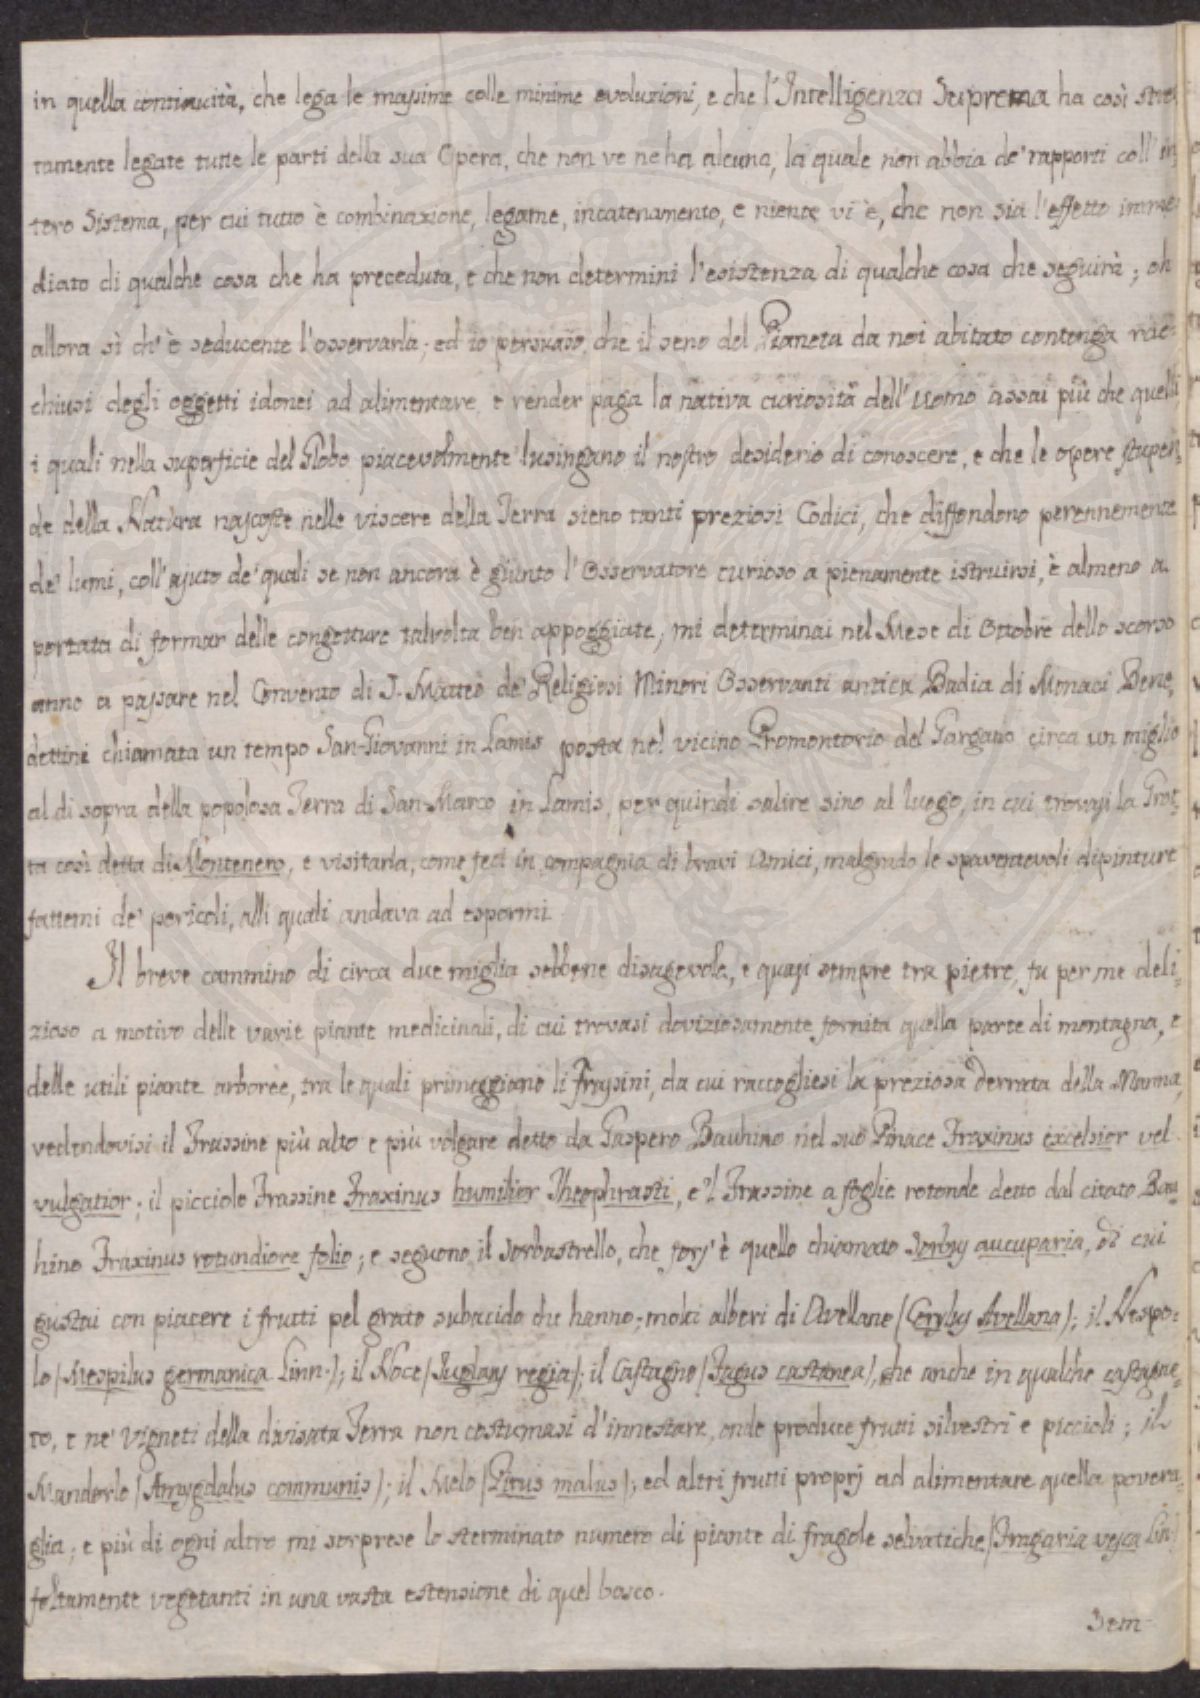 in quella continuità, che lega le massime colle minime evoluzioni, e che l'Intelligenza Suprema ha così stret
tamente legate tutte le parti della sua Opera, che non ve ne ha alcuna, la quale non abbia de' rapporti coll' in
tero Sistema, per cui tutto è combinazione, legame, incatenamento, e niente vi è, che non sia l'effetto imme
diato di qualche cosa che ha preceduta, e che non determini l'esistenza di qualche cosa che seguirà; oh
allora sì ch' è seducente l'osservarla; ed io persuaso, che il seno del Pianeta da noi abitato contenga rac-
chiusi degli oggetti idonei ad alimentare, e render paga la nativa curiosità dell'uomo assai più che quelli,
i quali nella superficie del Globo piacevolmente lusingano il nostro desiderio di conoscere, e che le opere stupen-
de della Natura nascoste nelle viscere della Terra sieno tanti preziosi Codici, che diffondono perennemente
de' lumi, coll' ajuto de' quali se non ancora è giunto l'Osservatore curioso a pienamente istruirsi, è almeno a
portata di formar delle congetture talvolta ben appoggiate; mi determinai nel Mese di Ottobre dello scorso
anno a passare nel Convento di S. Matteo de' Religiosi Minori Osservanti antica Badia di Monaci Bene-
dettini chiamata un tempo San-Giovanni in Lamis posta nel vicino Promontorio del Gargano circa un miglio
al di sopra della popolosa Terra di San-Marco in Lamis, per quindi salire sino al luogo, in cui trovasi la Grot-
ta così detta di Montenero, e visitarla, come feci in compagnia di bravi Amici, malgrado le spaventevoli dipinture
fattemi de' pericoli, alli quali andava ad espormi.
Il breve cammino di circa due miglia sebbene disagevole, e quasi sempre tra pietre, fu per me deli-
zioso a motivo delle varie piante medicinali, di cui trovasi doviziosamente fornita quella parte di montagna, e
delle utili piante arboree, tra le quali primeggiano li frassini, da cui raccogliesi la preziosa derrata della Manna,
vedendovisi il Frassine più alto e più volgare detto da Gaspero Bauhino nel suo Pinace Fraxinus excelsior vel
vulgatior; il picciolo Frassine Fraxinus humilior Theophrasti, e 'l Frassine a foglie rotonde detto dal citato Bau-
hino Fraxinus rotundiore folio; e seguono il Sorbastrello, che fors' è quello chiamato Sorbus aucuparia, di cui
gustai con piacere i frutti pel grato subacido che hanno; molti alberi di Avellane (Corylus Avellana); il Nespo-
lo (Mespilus germanica Linn.); il Noce (Juglans regia); il Castagno (Fagus castanea), che anche in qualche castagne-
to, e ne' vigneti della divisata Terra non costumasi d'innestare, onde produce frutti silvestri e piccioli; il
Mandorlo (Amygdalus communis); il Melo (Pirus malus); ed altri frutti proprj ad alimentare quella povera-
glia; e più di ogni altro mi sorprese lo sterminato numero di piante di fragole selvatiche (Fragaria vesca Lin)
foltamente vegetanti in una vasta estensione di quel bosco.
Sem-